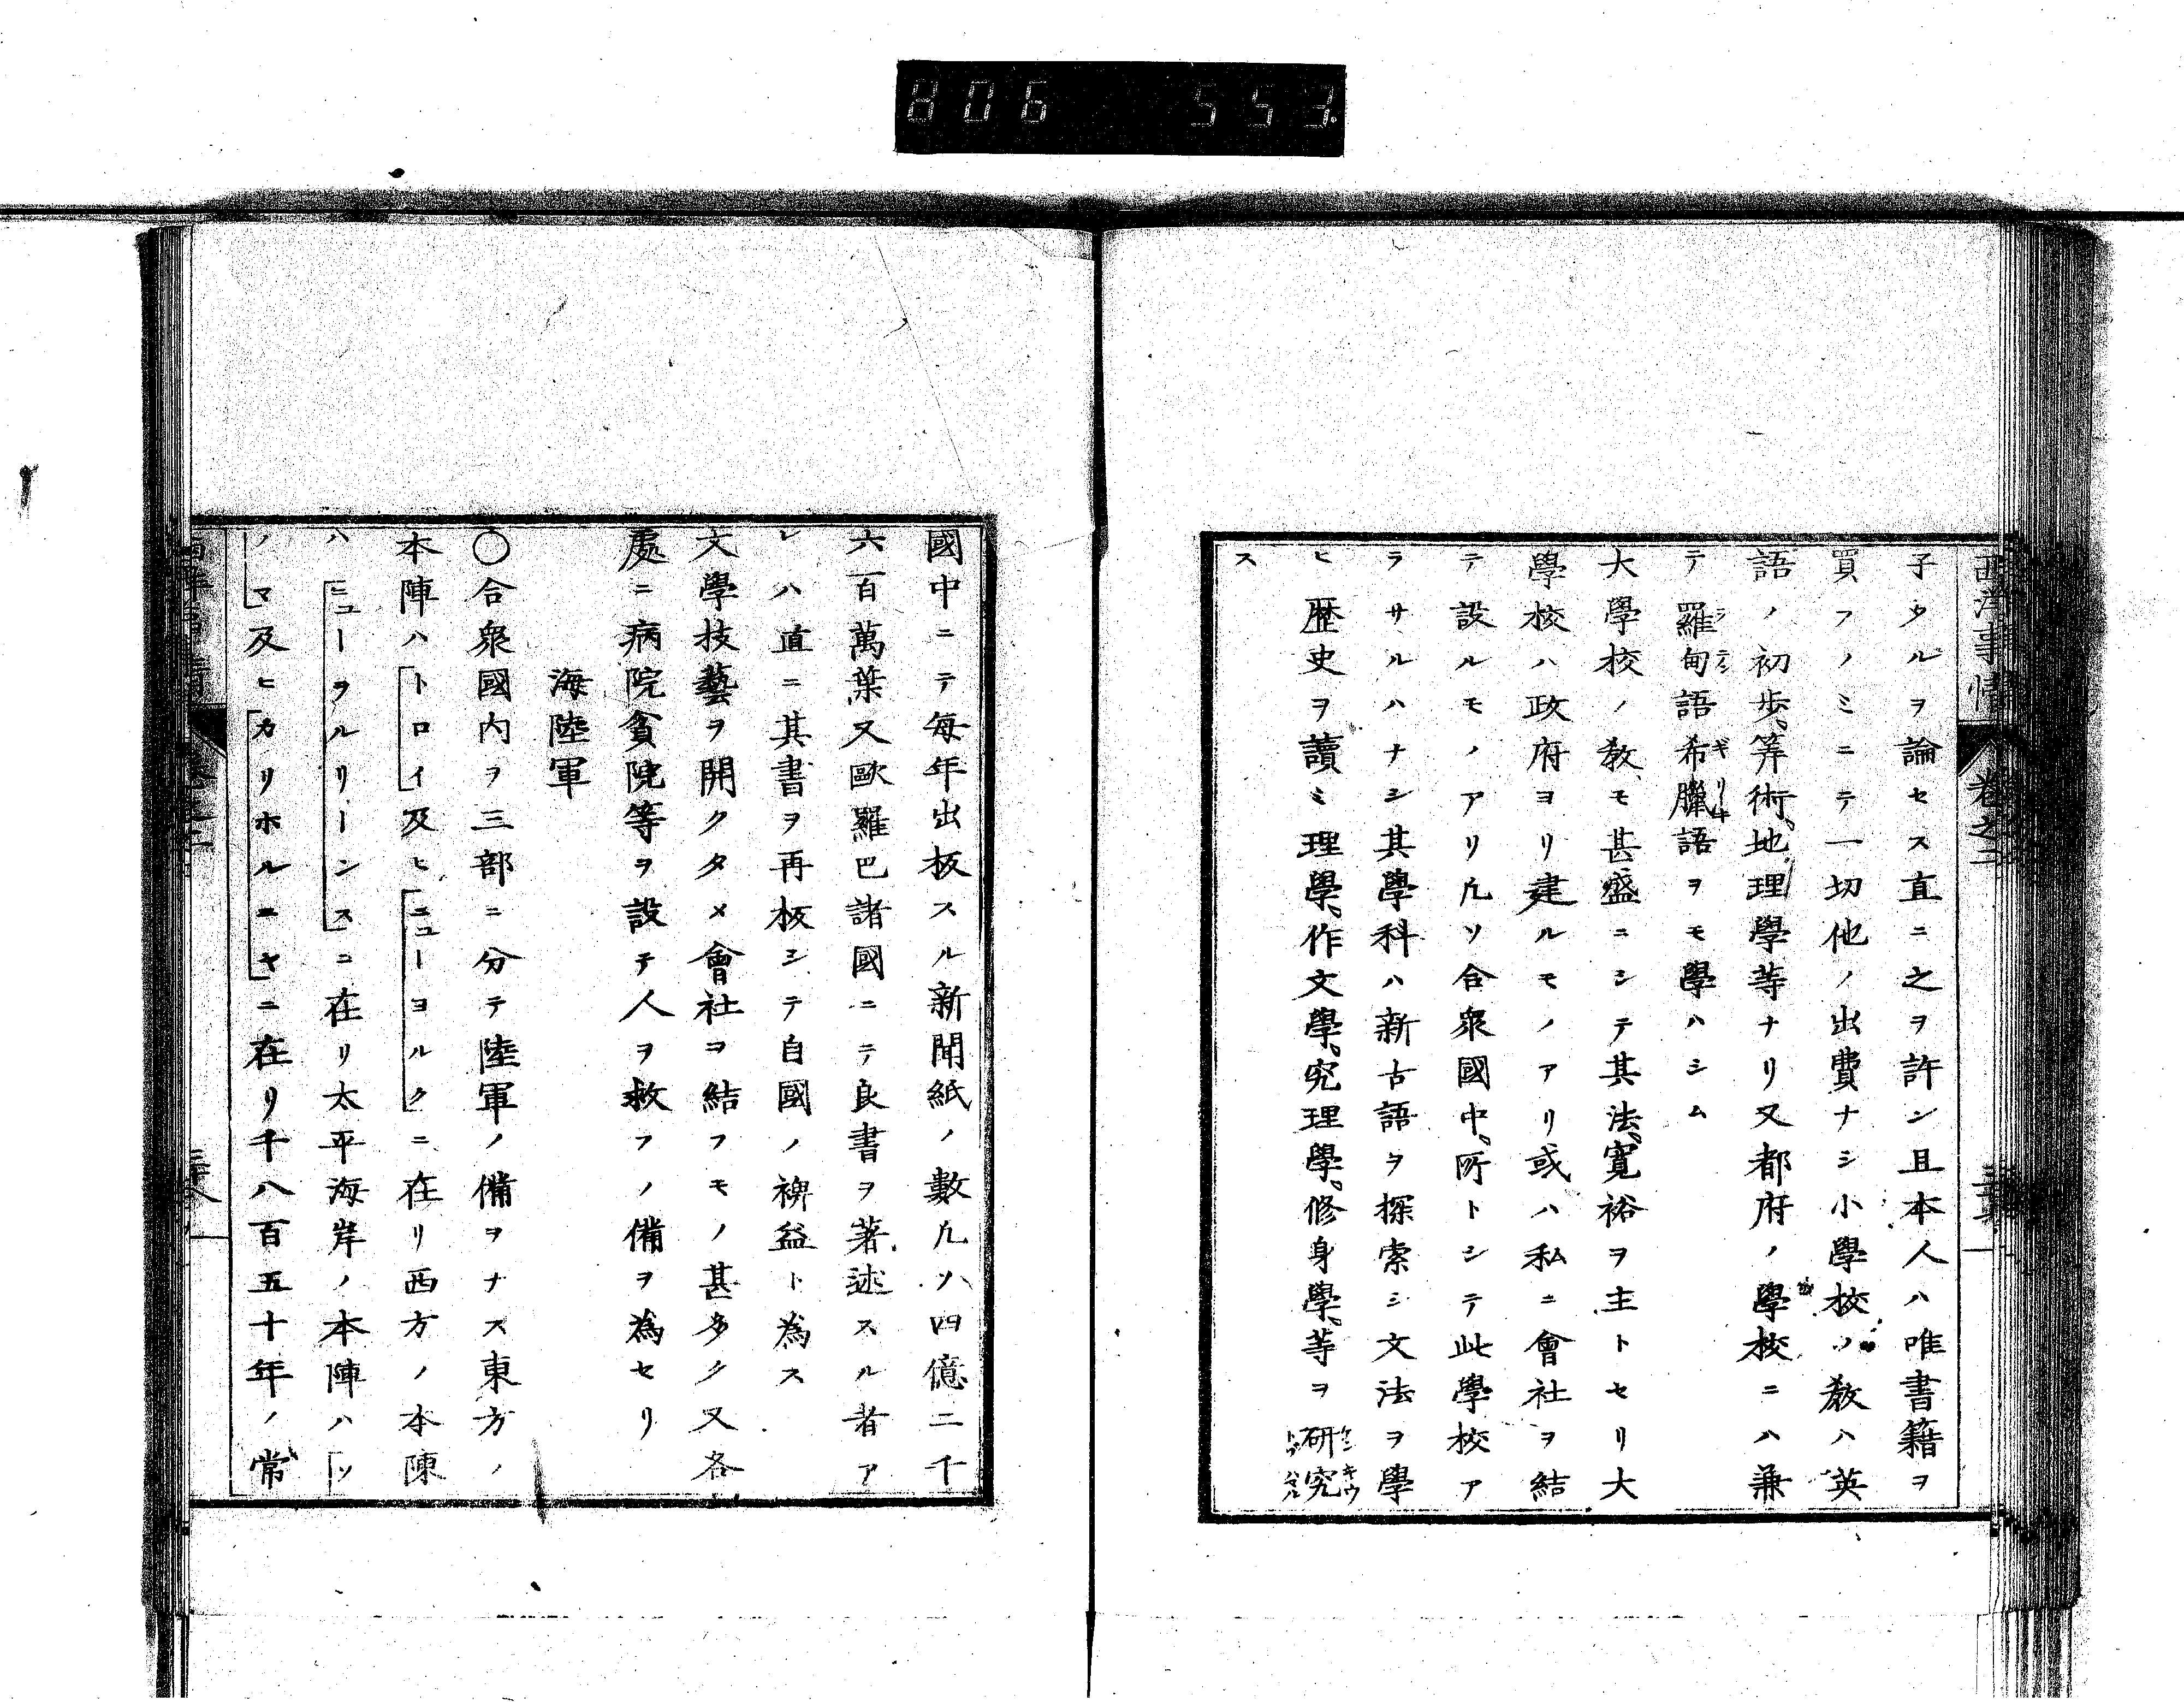 806 553
西洋事情 卷之二
子タルヲ論セス直ニ之ヲ許ン且本人ハ唯書籍ヲ
買フノミニテ一切他ノ出費ナシ小學校ノ教ハ英
語ノ初歩、筭術、地理學等ナリ又都府ノ學校ニハ兼
テ羅甸語希臘語ヲモ學ハシム
大學校ノ教モ甚盛ニシテ其法、寛裕ヲ主トセリ大
學校ハ政府ヨリ建ルモノアリ或ハ私ニ會社ヲ結
テ設ルモノアリ凡ソ合衆國中、所トシテ此學校ア
ラサルハナシ其學科ハ新古語ヲ探索シ文法ヲ學
ヒ歴史ヲ讀ミ理學、作文學、究理學、修身學、等ヲ研究
ス
國中ニテ毎年出板スル新聞紙ノ數凡ソ四億二千
六百萬葉又歐羅巴諸國ニテ良書ヲ著述スル者ア
レハ直ニ其書ヲ再板シテ自國ノ裨益ト為ス
文學技藝ヲ開クタメ會社ヲ結フモノ甚多ク又各
處ニ病院貧院等ヲ設テ人ヲ救フノ備ヲ為セリ
海陸軍
○合衆國内ヲ三部ニ分テ陸軍ノ備ヲナス東方ノ
本陣ハ「トロイ」及ヒ「ニューヨルク」ニ在リ西方ノ本陳
ハ「ニューヲルリーンス」ニ在リ太平海岸ノ本陣ハ「ソ
ノマ」及ヒ「カリホルニヤ」ニ在リ千八百五十年ノ常